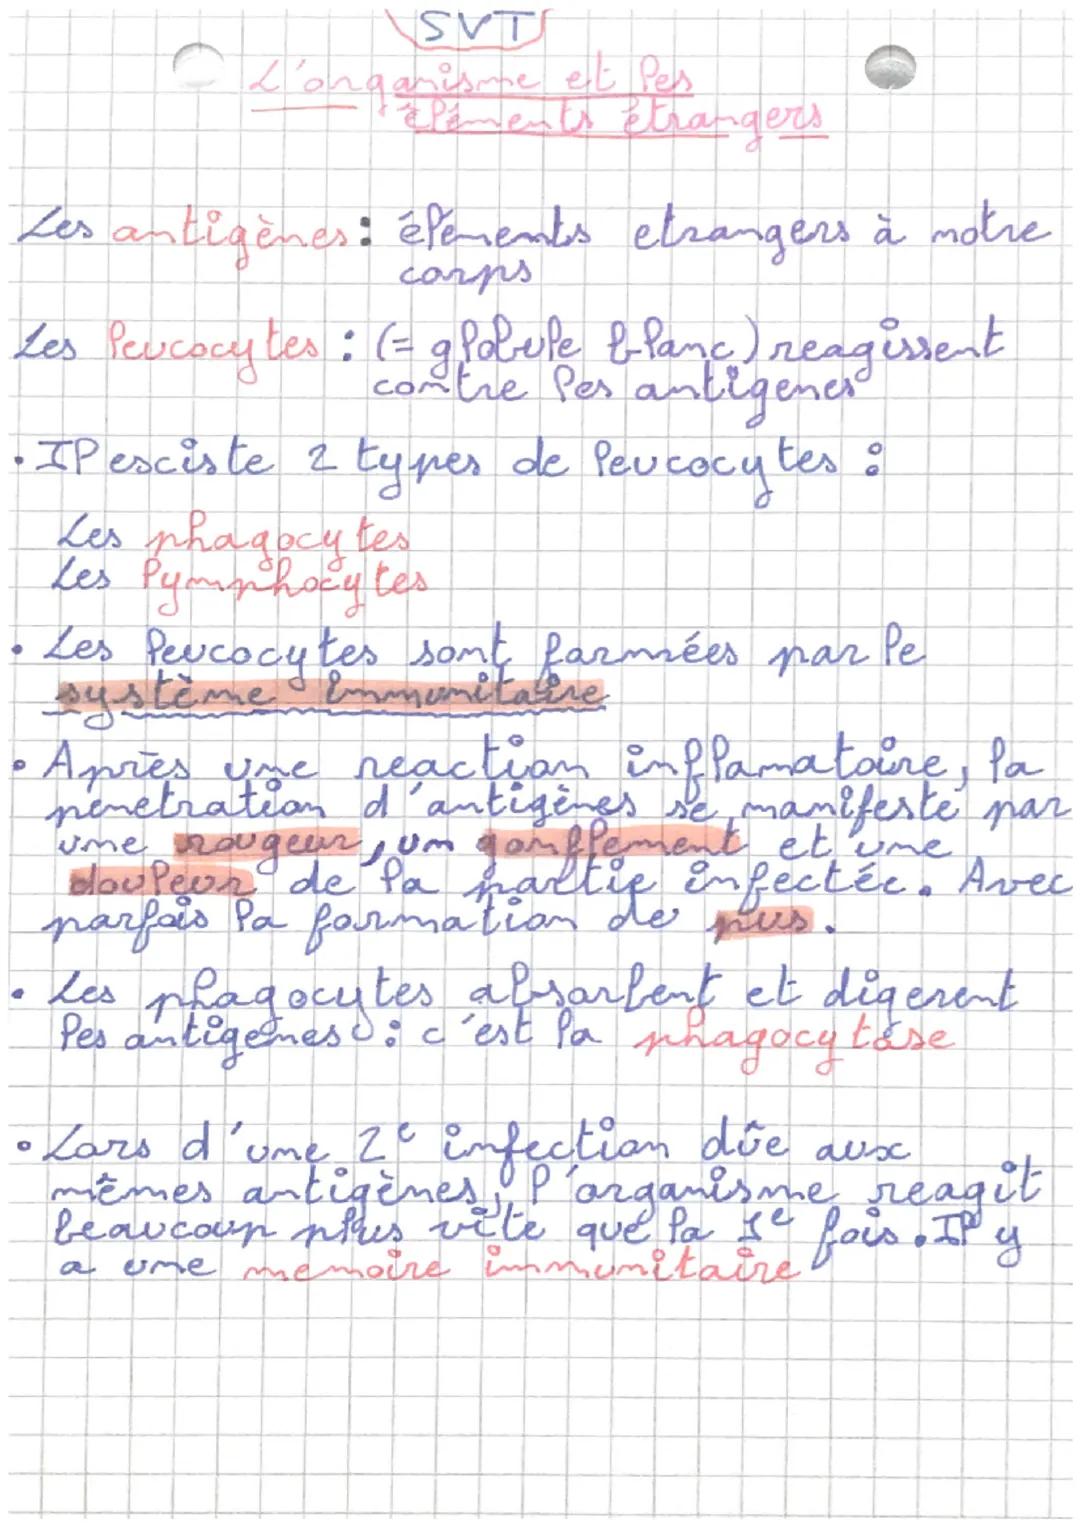 SVT
L'organisme et les
éléments étrangers
Les antigènes : éléments etrangers à notre
corps
Les leucocytes : (= globule blanc) reagissent
contre les antigenes
• Il esciste 2 types de leucocytes :
Les phagocytes
Les lymphocytes
• Les leucocytes sont formées par le
système immunitaire
• Après une reaction inflamatoire, la
penetration d'antigènes se manifeste par
une rougeur, un gonflement et une
douleur de la partie infectée. Avec
parfois la formation de pus.
• Les phagocytes absorbent et digerent
les antigenes : c'est la phagocytose
• Lors d'une 2e infection dûe aux
mêmes antigènes, l'organisme reagit
beaucoup plus vite que la 1e fois. Il y
a une memoire immunitaire